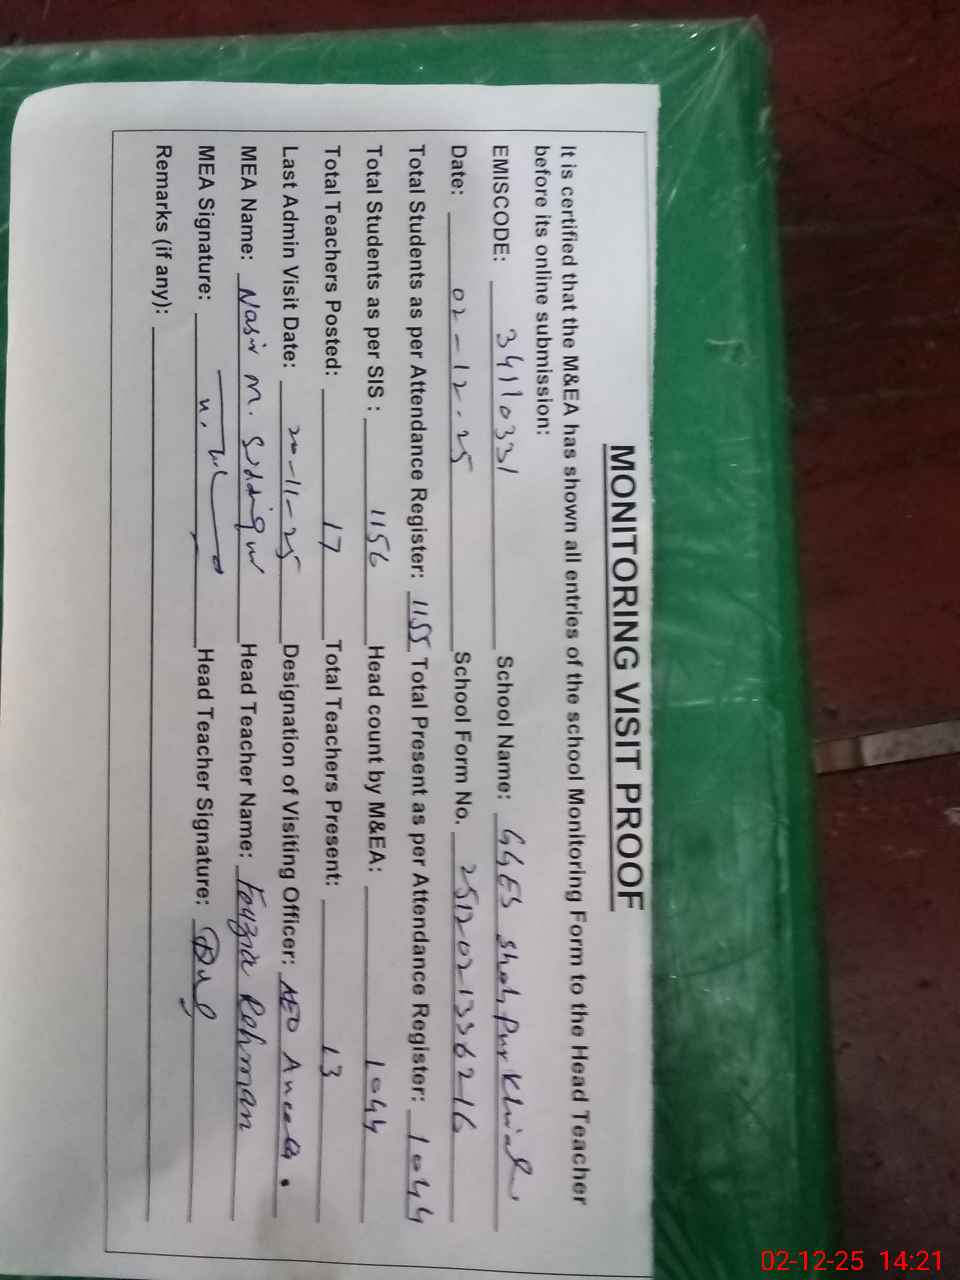 MONITORING VISIT PROOF
It is certified that the M&EA has shown all entries of the school Monitoring Form to the Head Teacher
before its online submission:
EMISCODE: 34110331 School Name: GGES Shah Pur
Date: 02-12-25 School Form No. 2512021336216
Total Students as per Attendance Register: 1155 Total Present as per Attendance Register: 1044
Total Students as per SIS : 1156 Head count by M&EA: 1044
Total Teachers Posted: 17 Total Teachers Present: 13
Last Admin Visit Date: 20-11-25 Designation of Visiting Officer: AEO
MEA Name: Nasir M. Siddiqui Head Teacher Name: Fouzia Rehman
MEA Signature: Head Teacher Signature:
Remarks (if any):
02-12-25 14:21